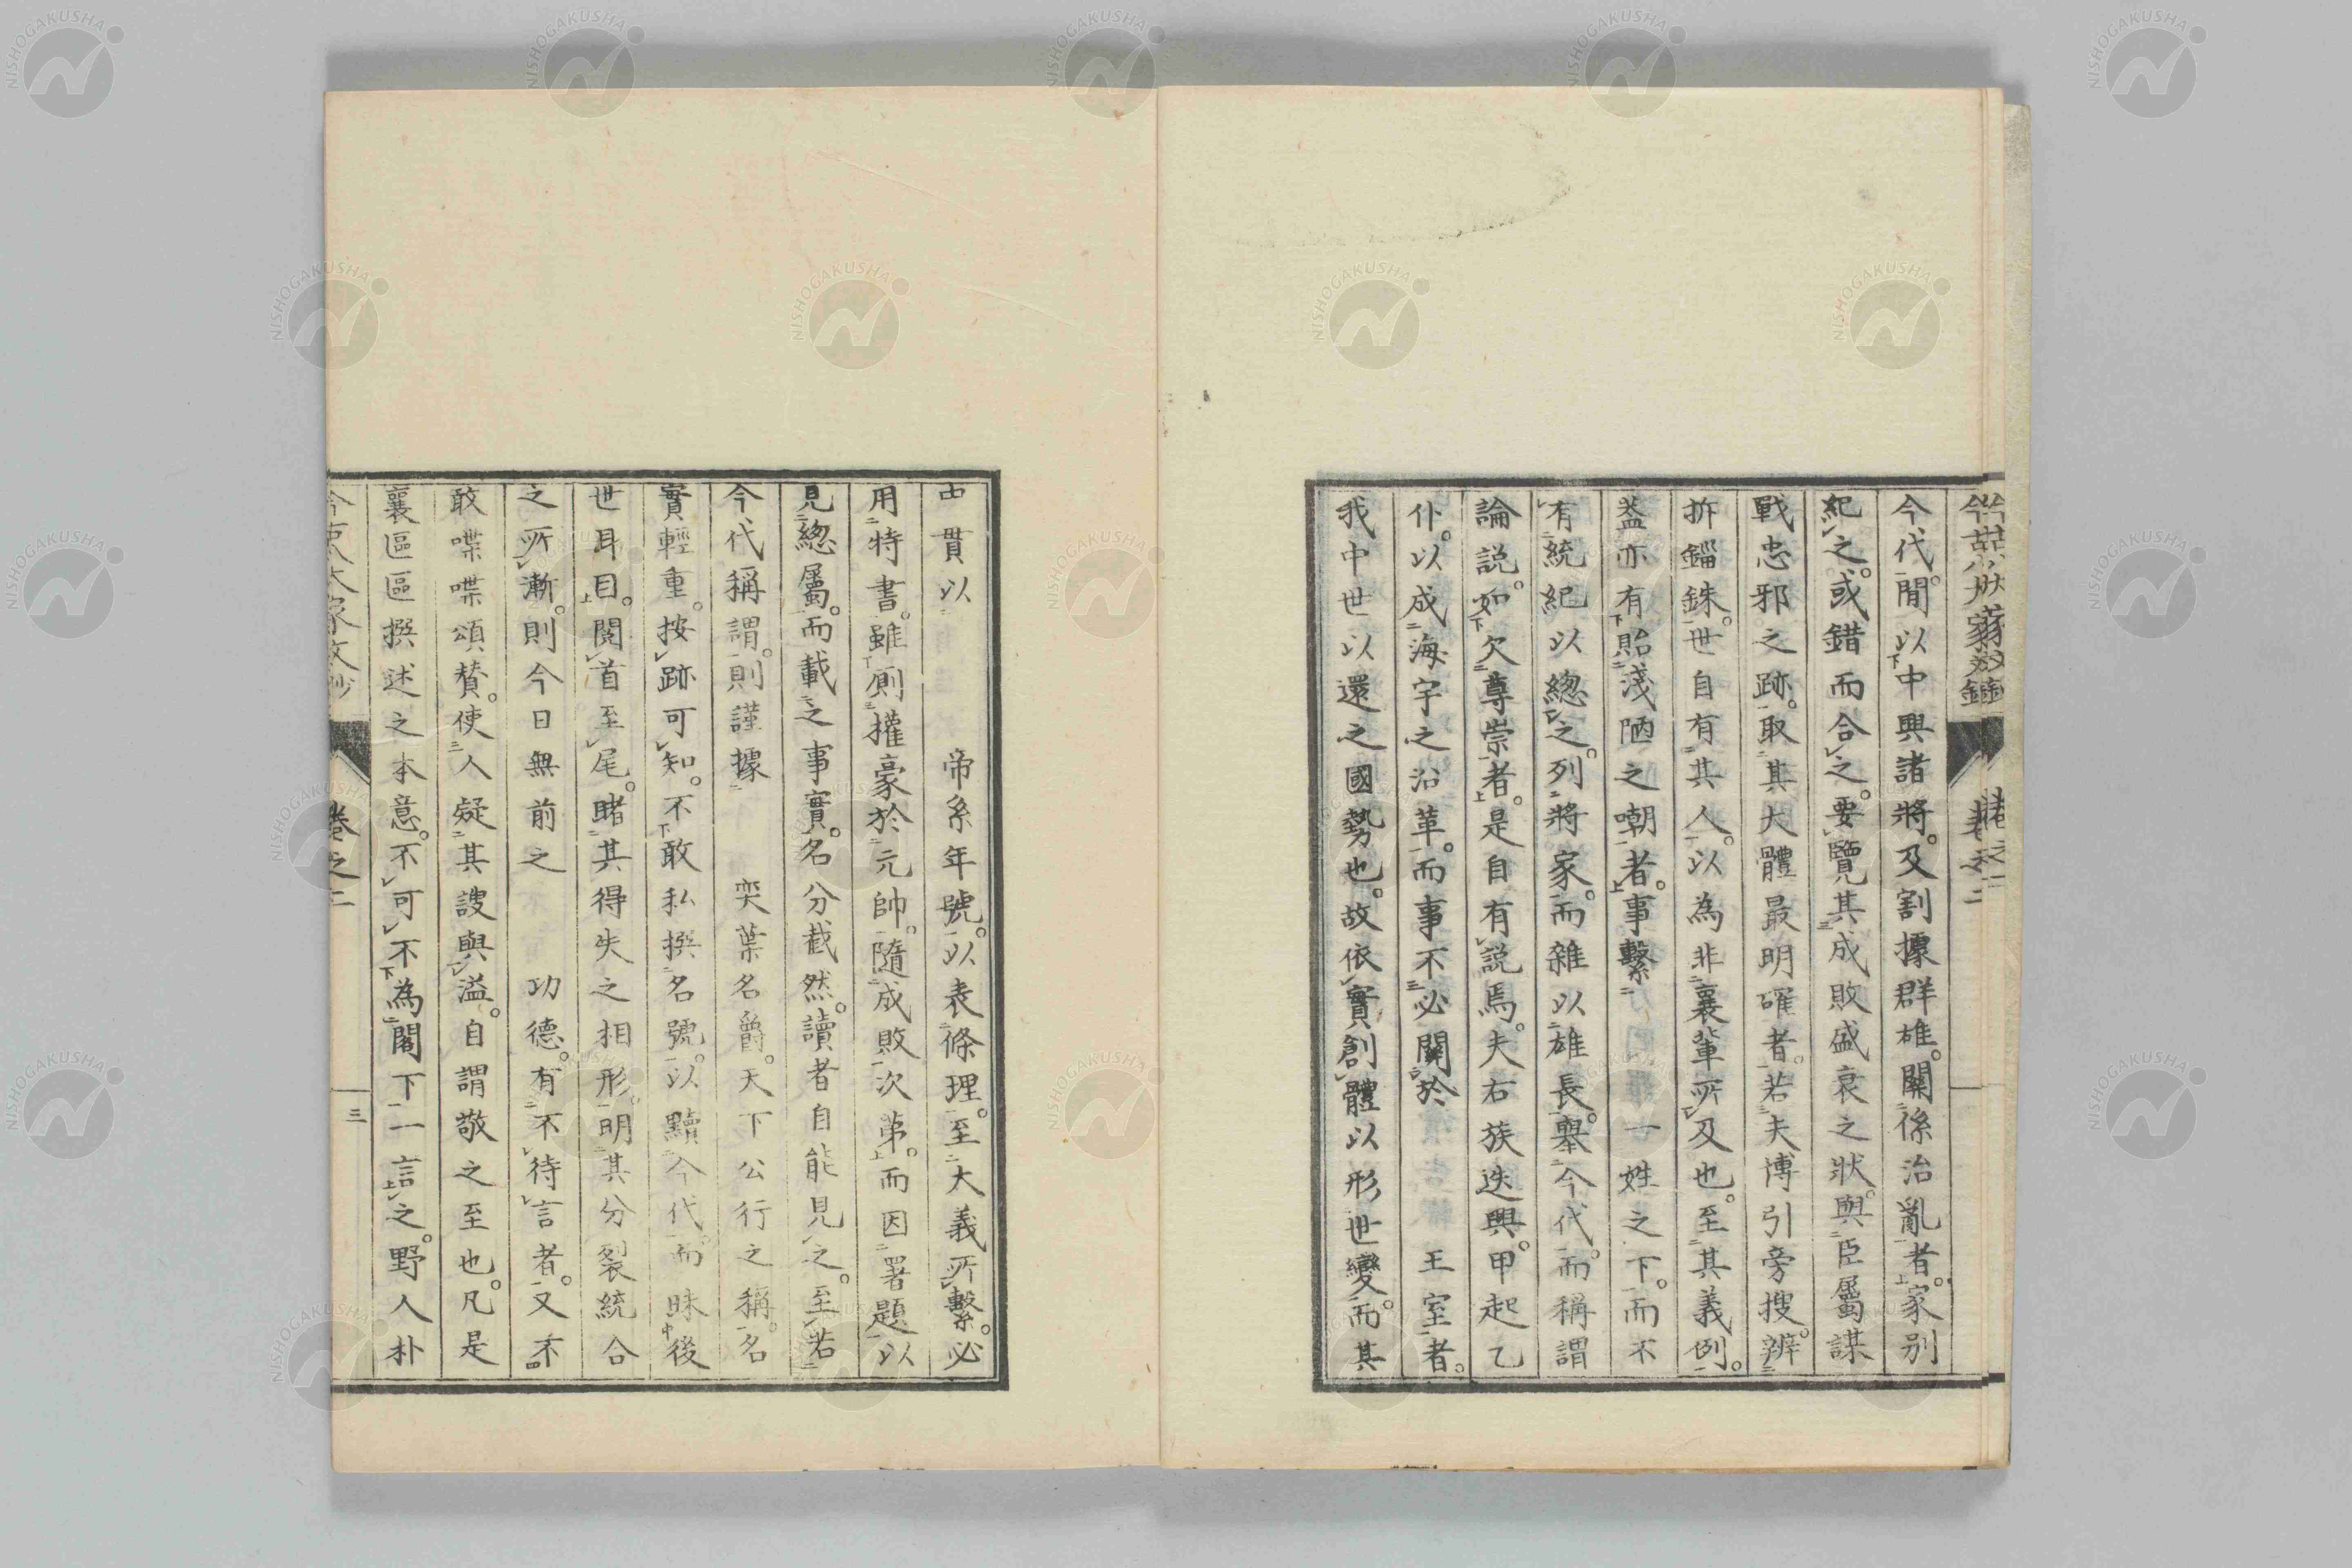 今代。間以中興諸將。及割據群雄。關係治亂者。家別
紀之。或錯而合之。要覽其成敗盛衰之狀。與臣屬謀
戰忠邪之跡。取其大體最明確者。若夫博引旁搜。辨
拆錙銖。世自有其人。以為非襄輩所及也。至其義例。
蓋亦有貽淺陋之嘲者。事繫一姓之下。而不
有統紀以總之。列將家。而雜以雄長。擧今代。而稱謂
論説。如欠尊崇者。是自有説焉。夫右族迭興。甲起乙
仆。以成海宇之沿革。而事不必關於王室者。
我中世以還之國勢也。故依實創體以形世變。而其
中貫以帝系年號。以表條理。至大義所繫。必
用特書。雖厠權豪於元帥。隨成敗次第。而因署題以
見總屬。而載之事實。名分截然。讀者自能見之。至若
今代稱謂。則謹據奕葉名爵。天下公行之稱。名
實輕重。按跡可知。不敢私撰名號。以黷今代。而昧後
世耳目。閱首至尾。睹其得失之相形。明其分裂統合
之所漸。則今日無前之功德。有不待言者。又不
敢喋喋頌賛。使人疑其諛與溢。自謂敬之至也。凡是
襄區區撰述之本意。不可不為閣下一言之。野人朴
卷之二
三
NISHOGAKUSHA